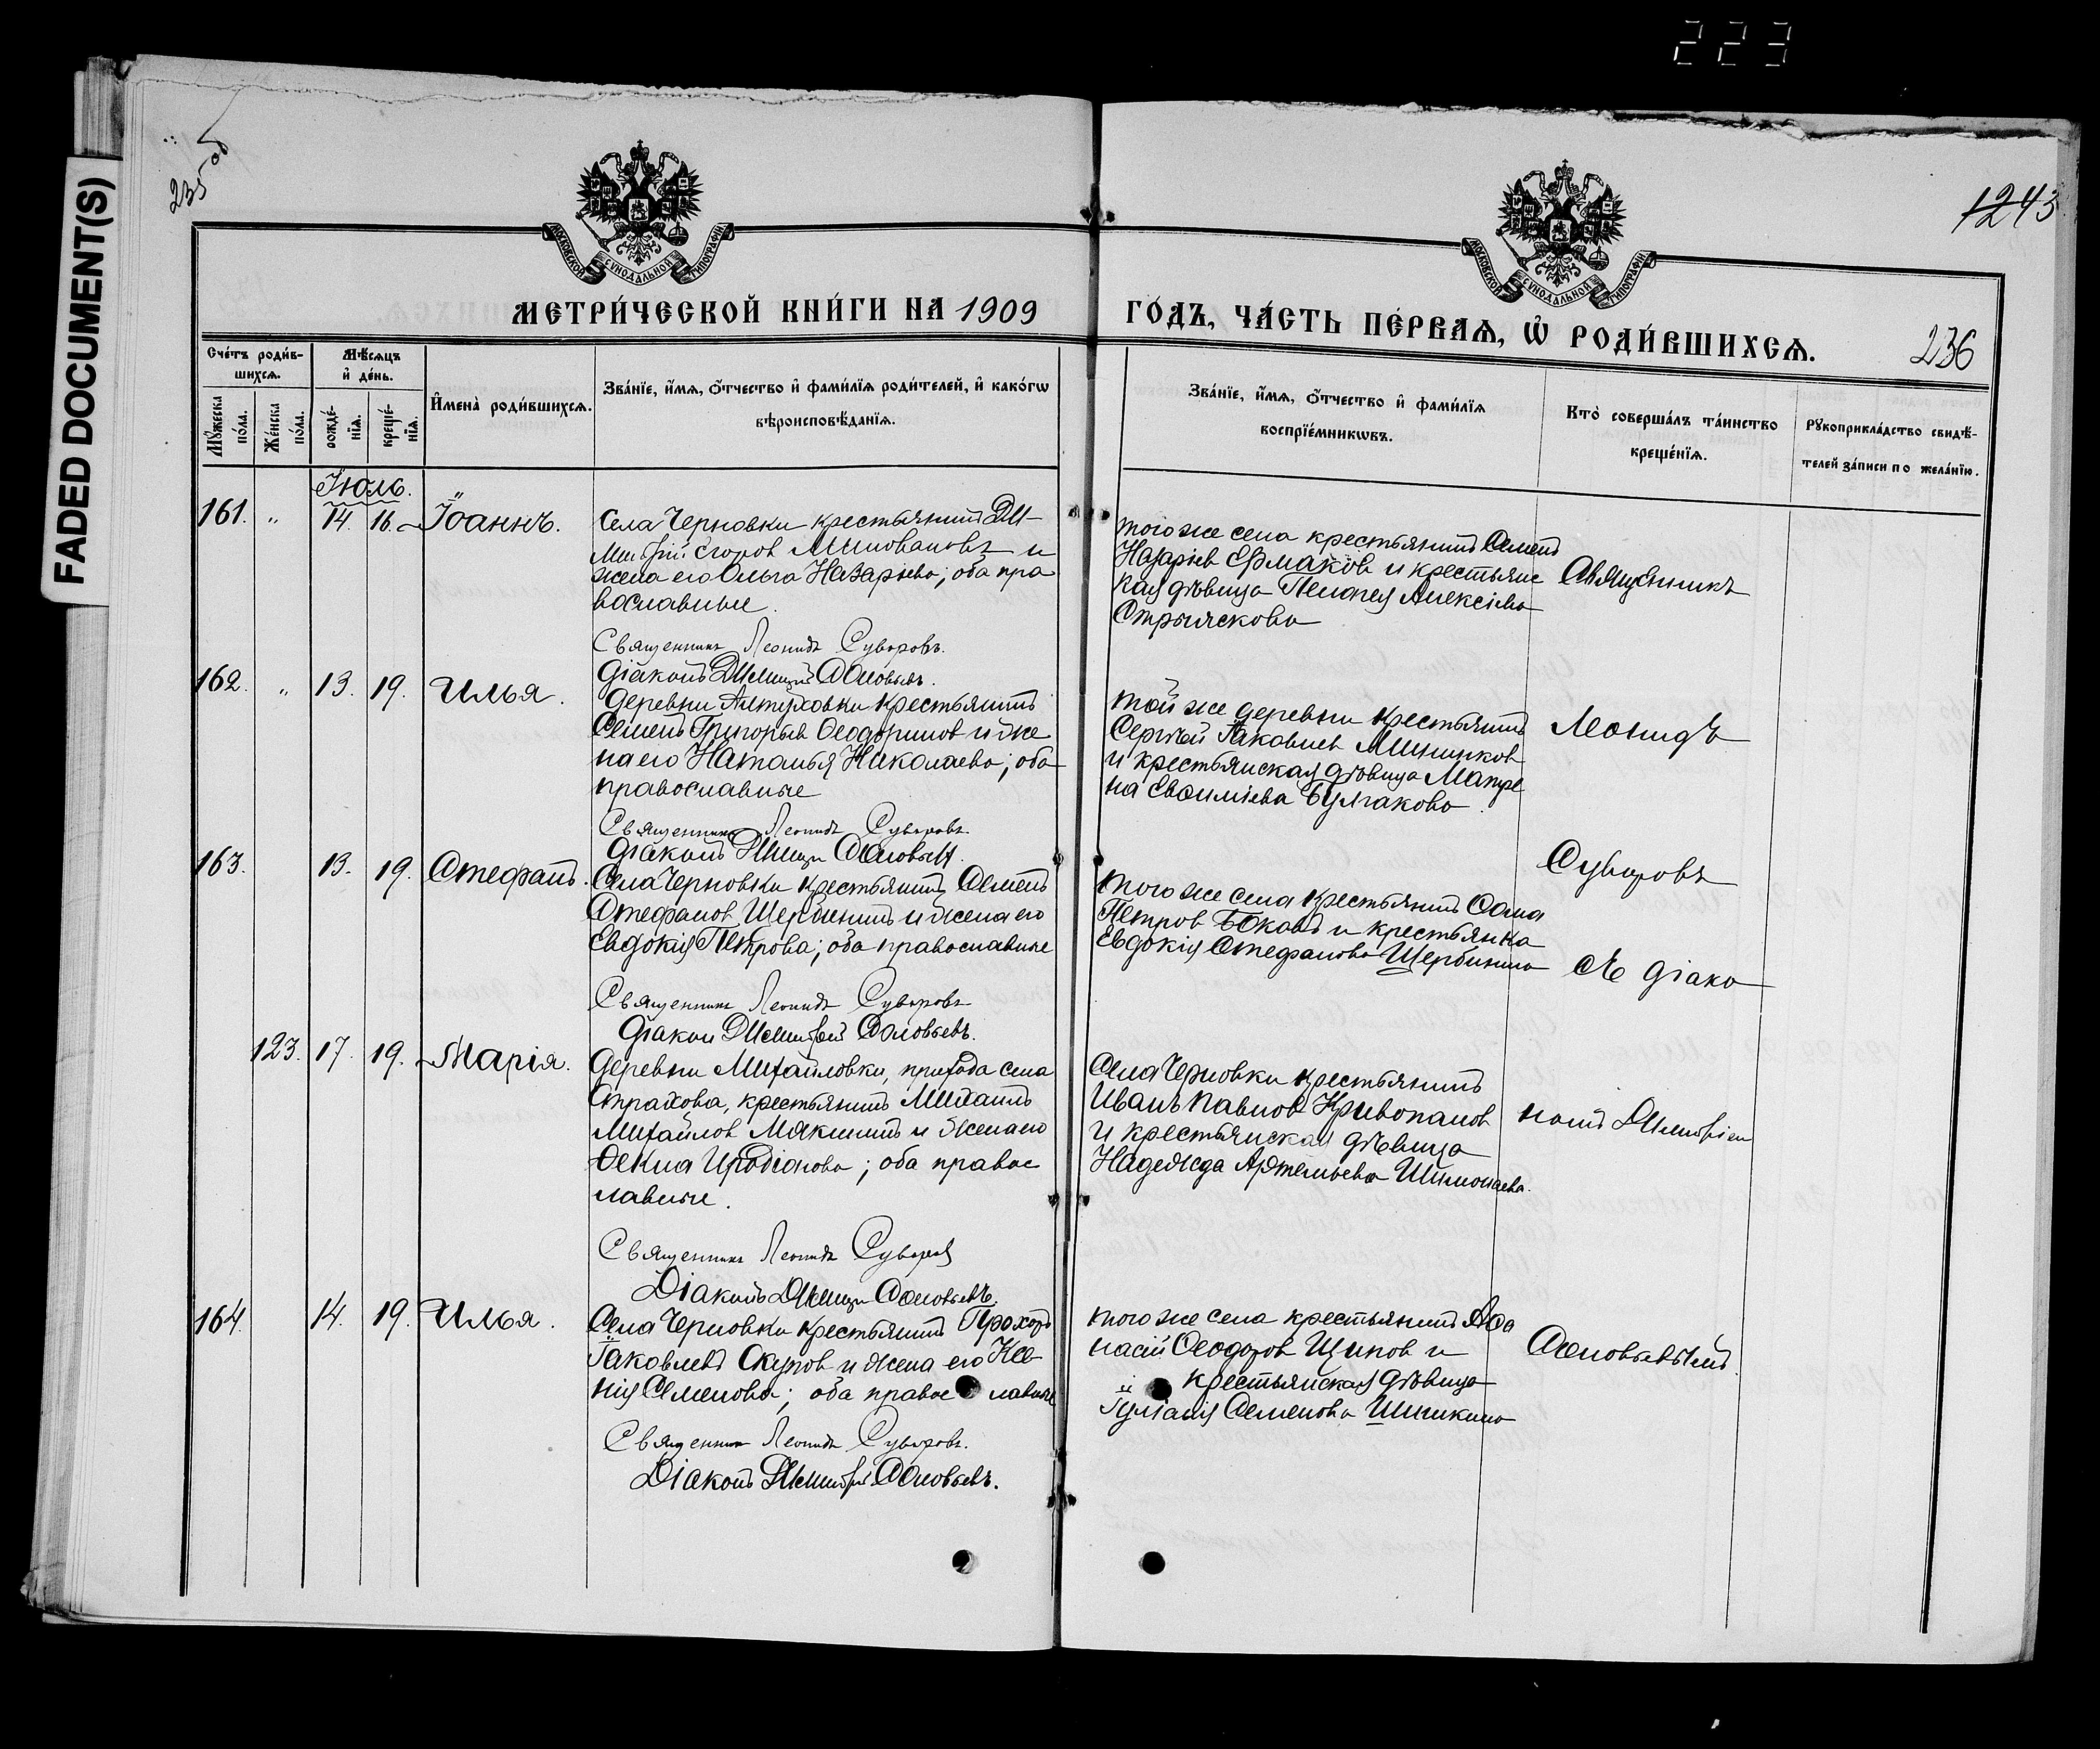 223
FADED DOCUMENT(S)
235 об
1243
МОСКОВСКОЙ СѴНОДАЛЬНОЙ ТИПОГРАФІИ
МОСКОВСКОЙ СѴНОДАЛЬНОЙ ТИПОГРАФІИ
МЕТРИ́ЧЕСКОЙ КНИ́ГИ НА 1909
ГО́ДЪ, ЧА́СТЬ ПЕ́РВАѦ, Ѡ҆ РОДИ́ВШИХСѦ.
236
Сче́тъ роди́в-
шихсѧ.
Мꙋ́жеска по́ла.
Же́нска по́ла.
Мѣ́сѧцъ
и҆ де́нь.
рожде́-
нїѧ.
креще́-
нїѧ.
И҆мена̀ роди́вшихсѧ.
Зва́нїе, и҆́мѧ, ѻ҆́тчество и҆ фами́лїѧ роди́телей, и҆ како́гѡ
вѣроисповѣ́данїѧ.
Зва́нїе, и҆́мѧ, ѻ҆́тчество и҆ фами́лїѧ
воспрїе́мникѡвъ.
Кто̀ соверша́лъ та́инство
креще́нїѧ.
Рꙋкоприкла́дство свидѣ́-
телей за́писи по жела́нїю.
Іюль.
161. " 14. 16. Іоаннъ.
Села Черновки крестьянинъ Ди-
митрій Егоров Миловановъ и
жена его Ольга Назарьева; оба пра
вославные.
Священникъ Леонидъ Суворовъ.
Діаконъ Димитрій Соловьевъ.
того же села крестьянинъ Семенъ
Назарьев Ермаков и крестьянс
кая дѣвица Пелагея Алексіева
Священникъ
162. " 13. 19. Илья.
Деревни Алтуховки крестьянинъ
Семенъ Григорьев Феодоринов и же
на его Наталья Николаева; оба
православные
Священникъ Леонидъ Суворовъ
Діаконъ Димитрій Соловьевъ.
той же деревни крестьянинъ
Сергѣй Іаковлев Мишинков
и крестьянская дѣвица Матре
на Евѳиміева Булгакова.
Леонидъ
163. 13. 19. Стефанъ.
Села Черновки крестьянинъ Семенъ
Стефанов Щербининъ и жена его
Евдокія Петрова; оба православные
Священникъ Леонидъ Суворовъ
Діакон Димитрій Соловьевъ.
Суворовъ
того же села крестьянинъ Ѳома
Петров Боканъ и крестьянка
Евдокія Стефанова Щербинина
съ діако
123. 17. 19. Марія.
Деревни Михайловки, прихода села
Страхова, крестьянинъ Михаилъ
Михайлов Мякининъ и жена его
Ѳекла Иродіонова; оба правос
лавные.
Священникъ Леонидъ Суворов
Діаконъ Димитрій Соловьевъ.
Села Черновки крестьянинъ
Иванъ Павлов Кривопалов
и крестьянская дѣвица
Надежда Артемьева
номъ Димитріем
164. 14. 19. Илья.
Села Черновки крестьянинъ Прохоръ
Іаковлевъ Скупов и жена его Ксе-
нія Семенова; оба правос лавные
Священник Леонидъ Суворовъ.
Діаконъ Димитрій Соловьевъ.
того же села крестьянинъ Аѳа
насій Феодоров Щипов и
крестьянская дѣвица
Іуліанія Семенова Шишкина
Соловьевымъ